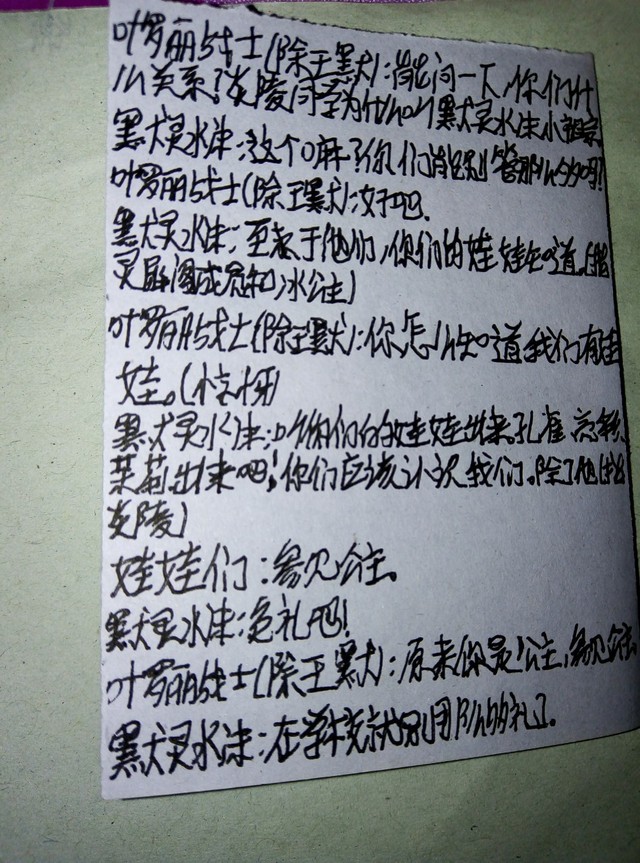 叶罗丽战士(除王默):能问一下,你们什
么关系?炎陵同学为什么叫黑犬灵水沫小祖宗
黑犬灵水沫:这个嘛?你们能别管那么多吗?
叶罗丽战士(除王默):好吧.
黑犬灵水沫:至于他们,你们的娃娃知道.(指
灵犀阁成员和冰公主)
叶罗丽战士(除王默):你怎么知道我们有娃
娃。(惊讶)
黑犬灵水沫:叫你们的娃娃出来孔雀
茉莉出来吧!你们应该认识我们.除了他(指
炎陵)
娃娃们:参见公主。
黑犬灵水沫:免礼吧!
叶罗丽战士(除王默):原来你是公主,参见公主
黑犬灵水沫:在学校就别用那么多的礼了.